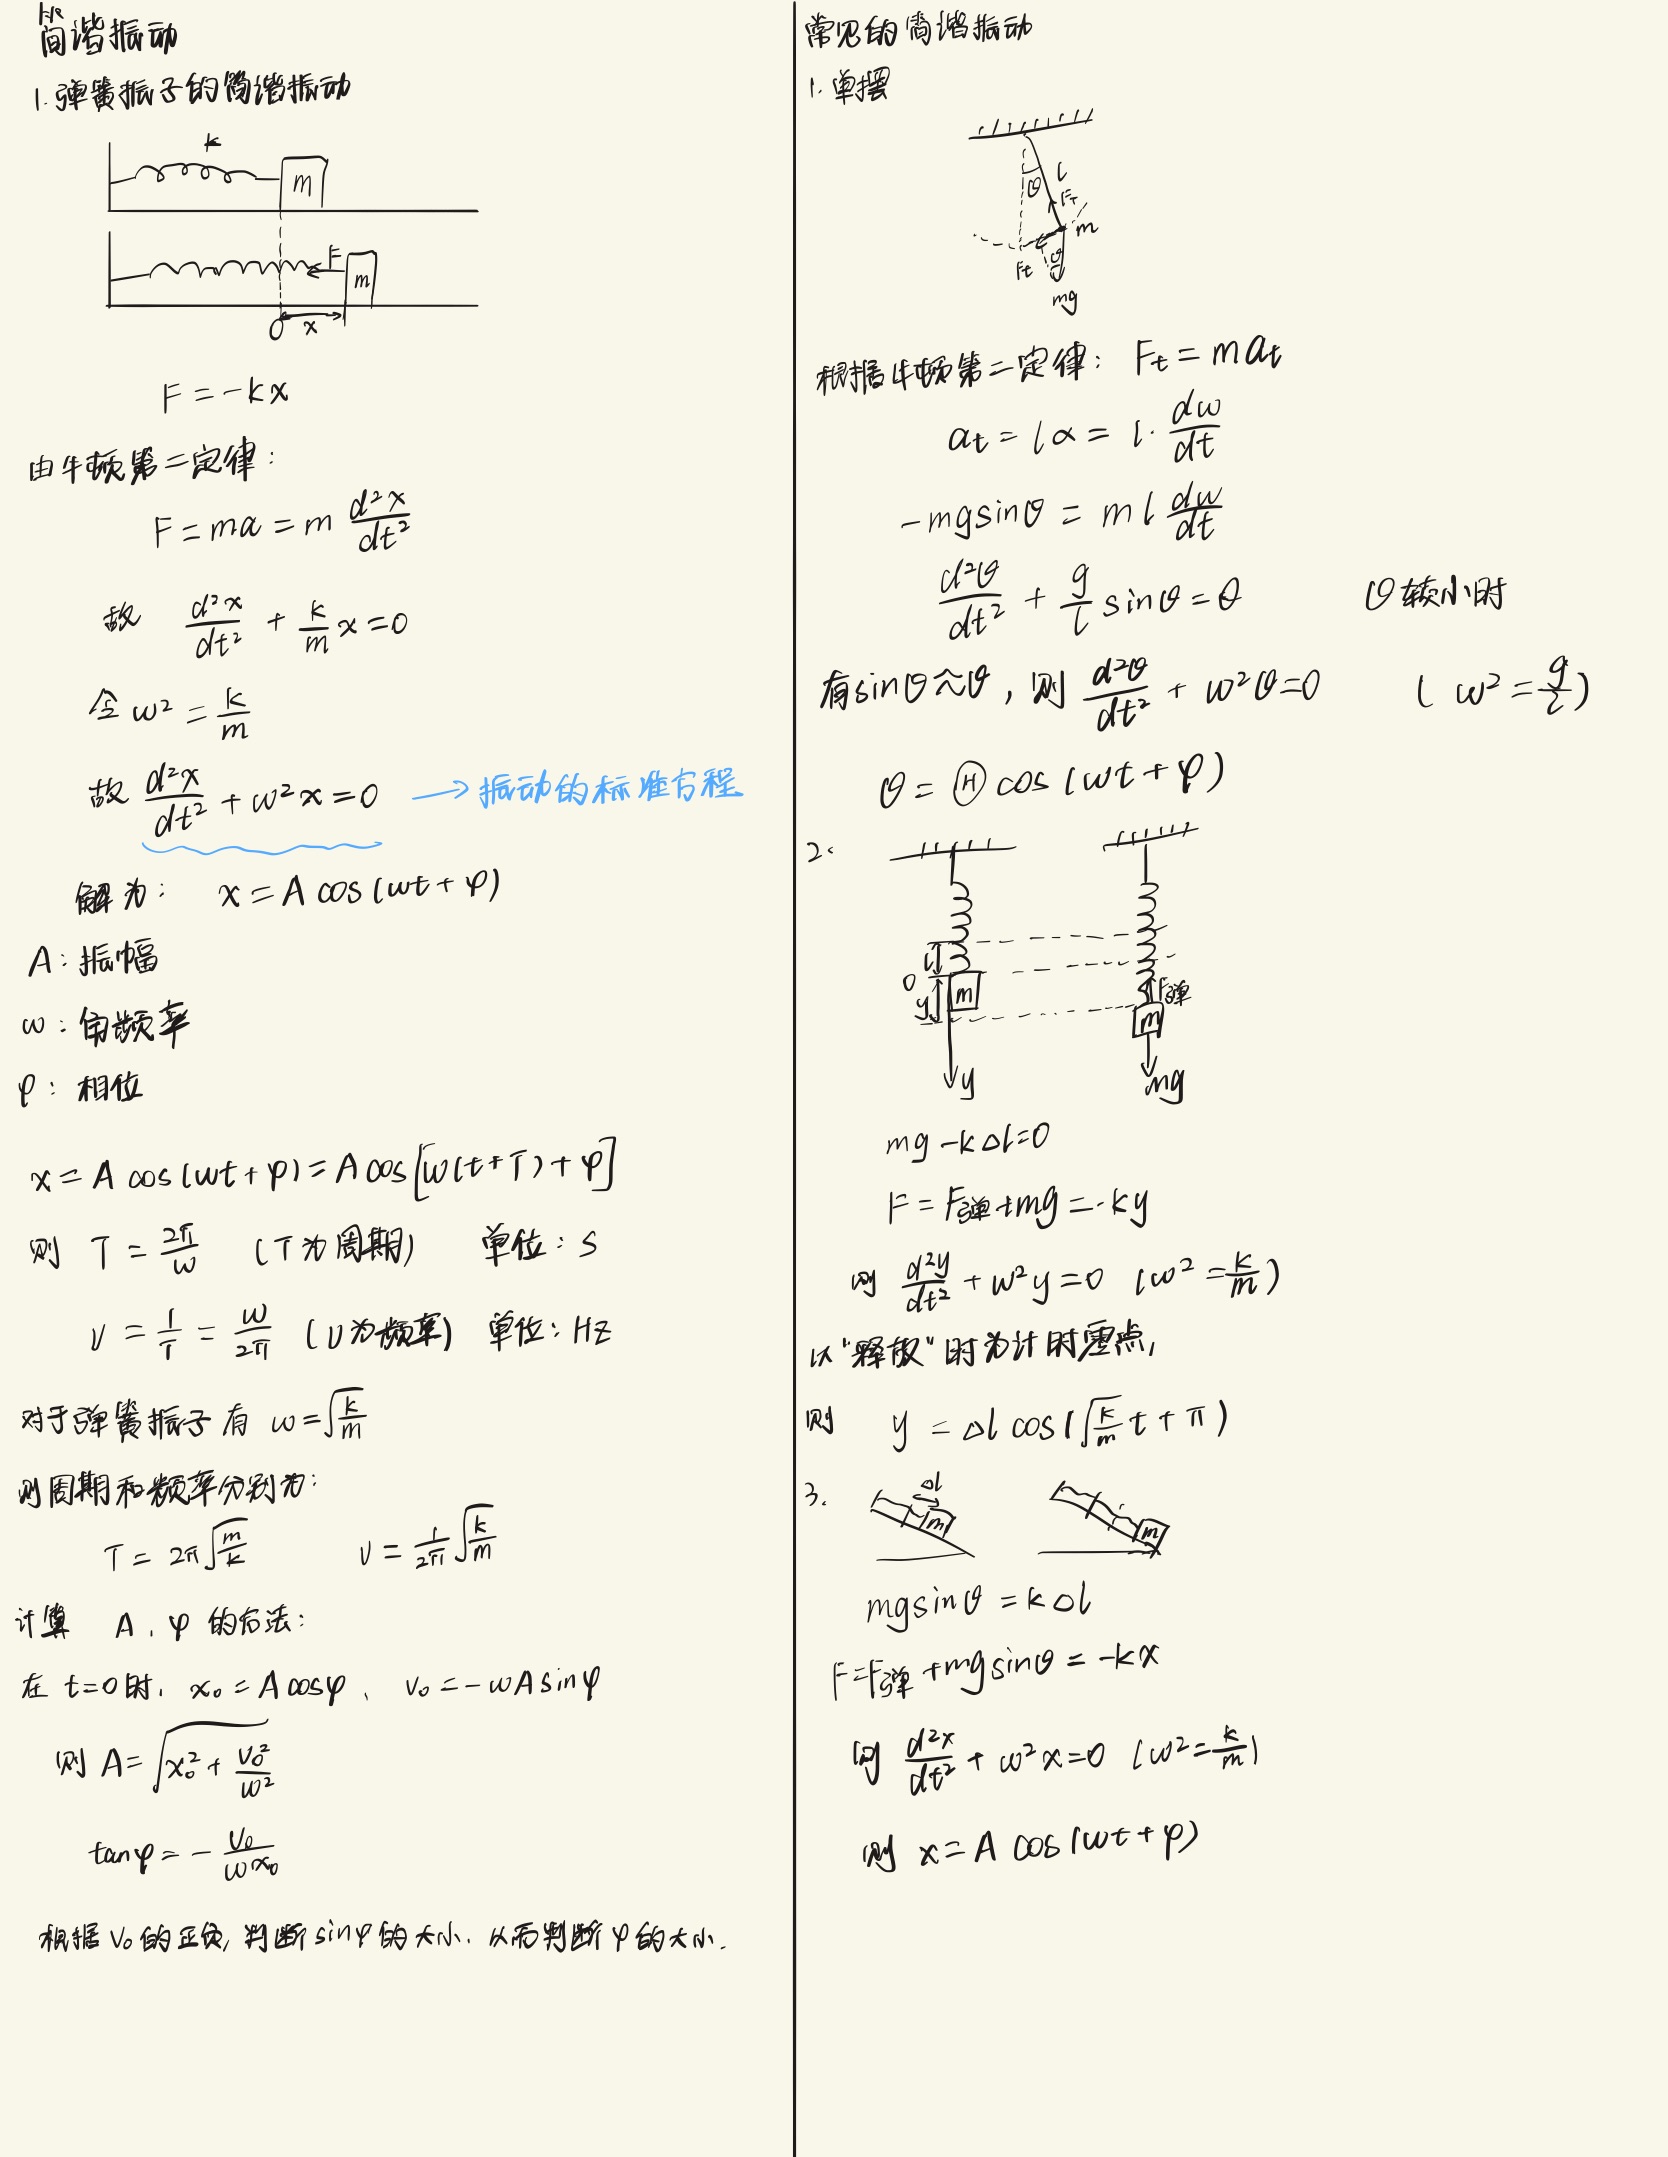 简谐振动
1. 弹簧振子的简谐振动
k
m
F
m
O x
F = -kx
由牛顿第二定律:
F = ma = m d²x/dt²
故 d²x/dt² + k/m x = 0
令 ω² = k/m
故 d²x/dt² + ω²x = 0 → 振动的标准方程
解为: x = A cos(ωt + φ)
A: 振幅
ω: 角频率
φ: 相位
x = A cos(ωt + φ) = A cos[ω(t + T) + φ]
则 T = 2π/ω (T为周期) 单位: s
ν = 1/T = ω/2π (ν为频率) 单位: Hz
对于弹簧振子有 ω = √(k/m)
则周期和频率分别为:
T = 2π√(m/k) ν = 1/2π √(k/m)
计算 A、φ 的方法:
在 t=0时, x₀ = A cosφ、 v₀ = -ωA sinφ
则 A = √(x₀² + v₀²/ω²)
tanφ = - v₀/ωx₀
根据 v₀ 的正负, 判断 sinφ 的大小. 从而判断 φ 的大小.
常见的简谐振动
1. 单摆
θ l
F_T
m
F_t θ
mg
根据牛顿第二定律: F_t = m a_t
a_t = lα = l · dω/dt
-mg sinθ = ml dω/dt
d²θ/dt² + g/l sinθ = 0 θ较小时
有 sinθ ≈ θ, 则 d²θ/dt² + ω²θ = 0 (ω² = g/l)
θ = Ⓗ cos(ωt + φ)
2.
l
O
m F弹
y m
y mg
mg - kΔl = 0
F = F弹 + mg = -ky
则 d²y/dt² + ω²y = 0 (ω² = k/m)
以"释放"时为计时零点,
则 y = Δl cos(√(k/m) t + π)
3.
Δl
m m
mg sinθ = kΔl
F = F弹 + mg sinθ = -kx
则 d²x/dt² + ω²x = 0 (ω² = k/m)
则 x = A cos(ωt + φ)